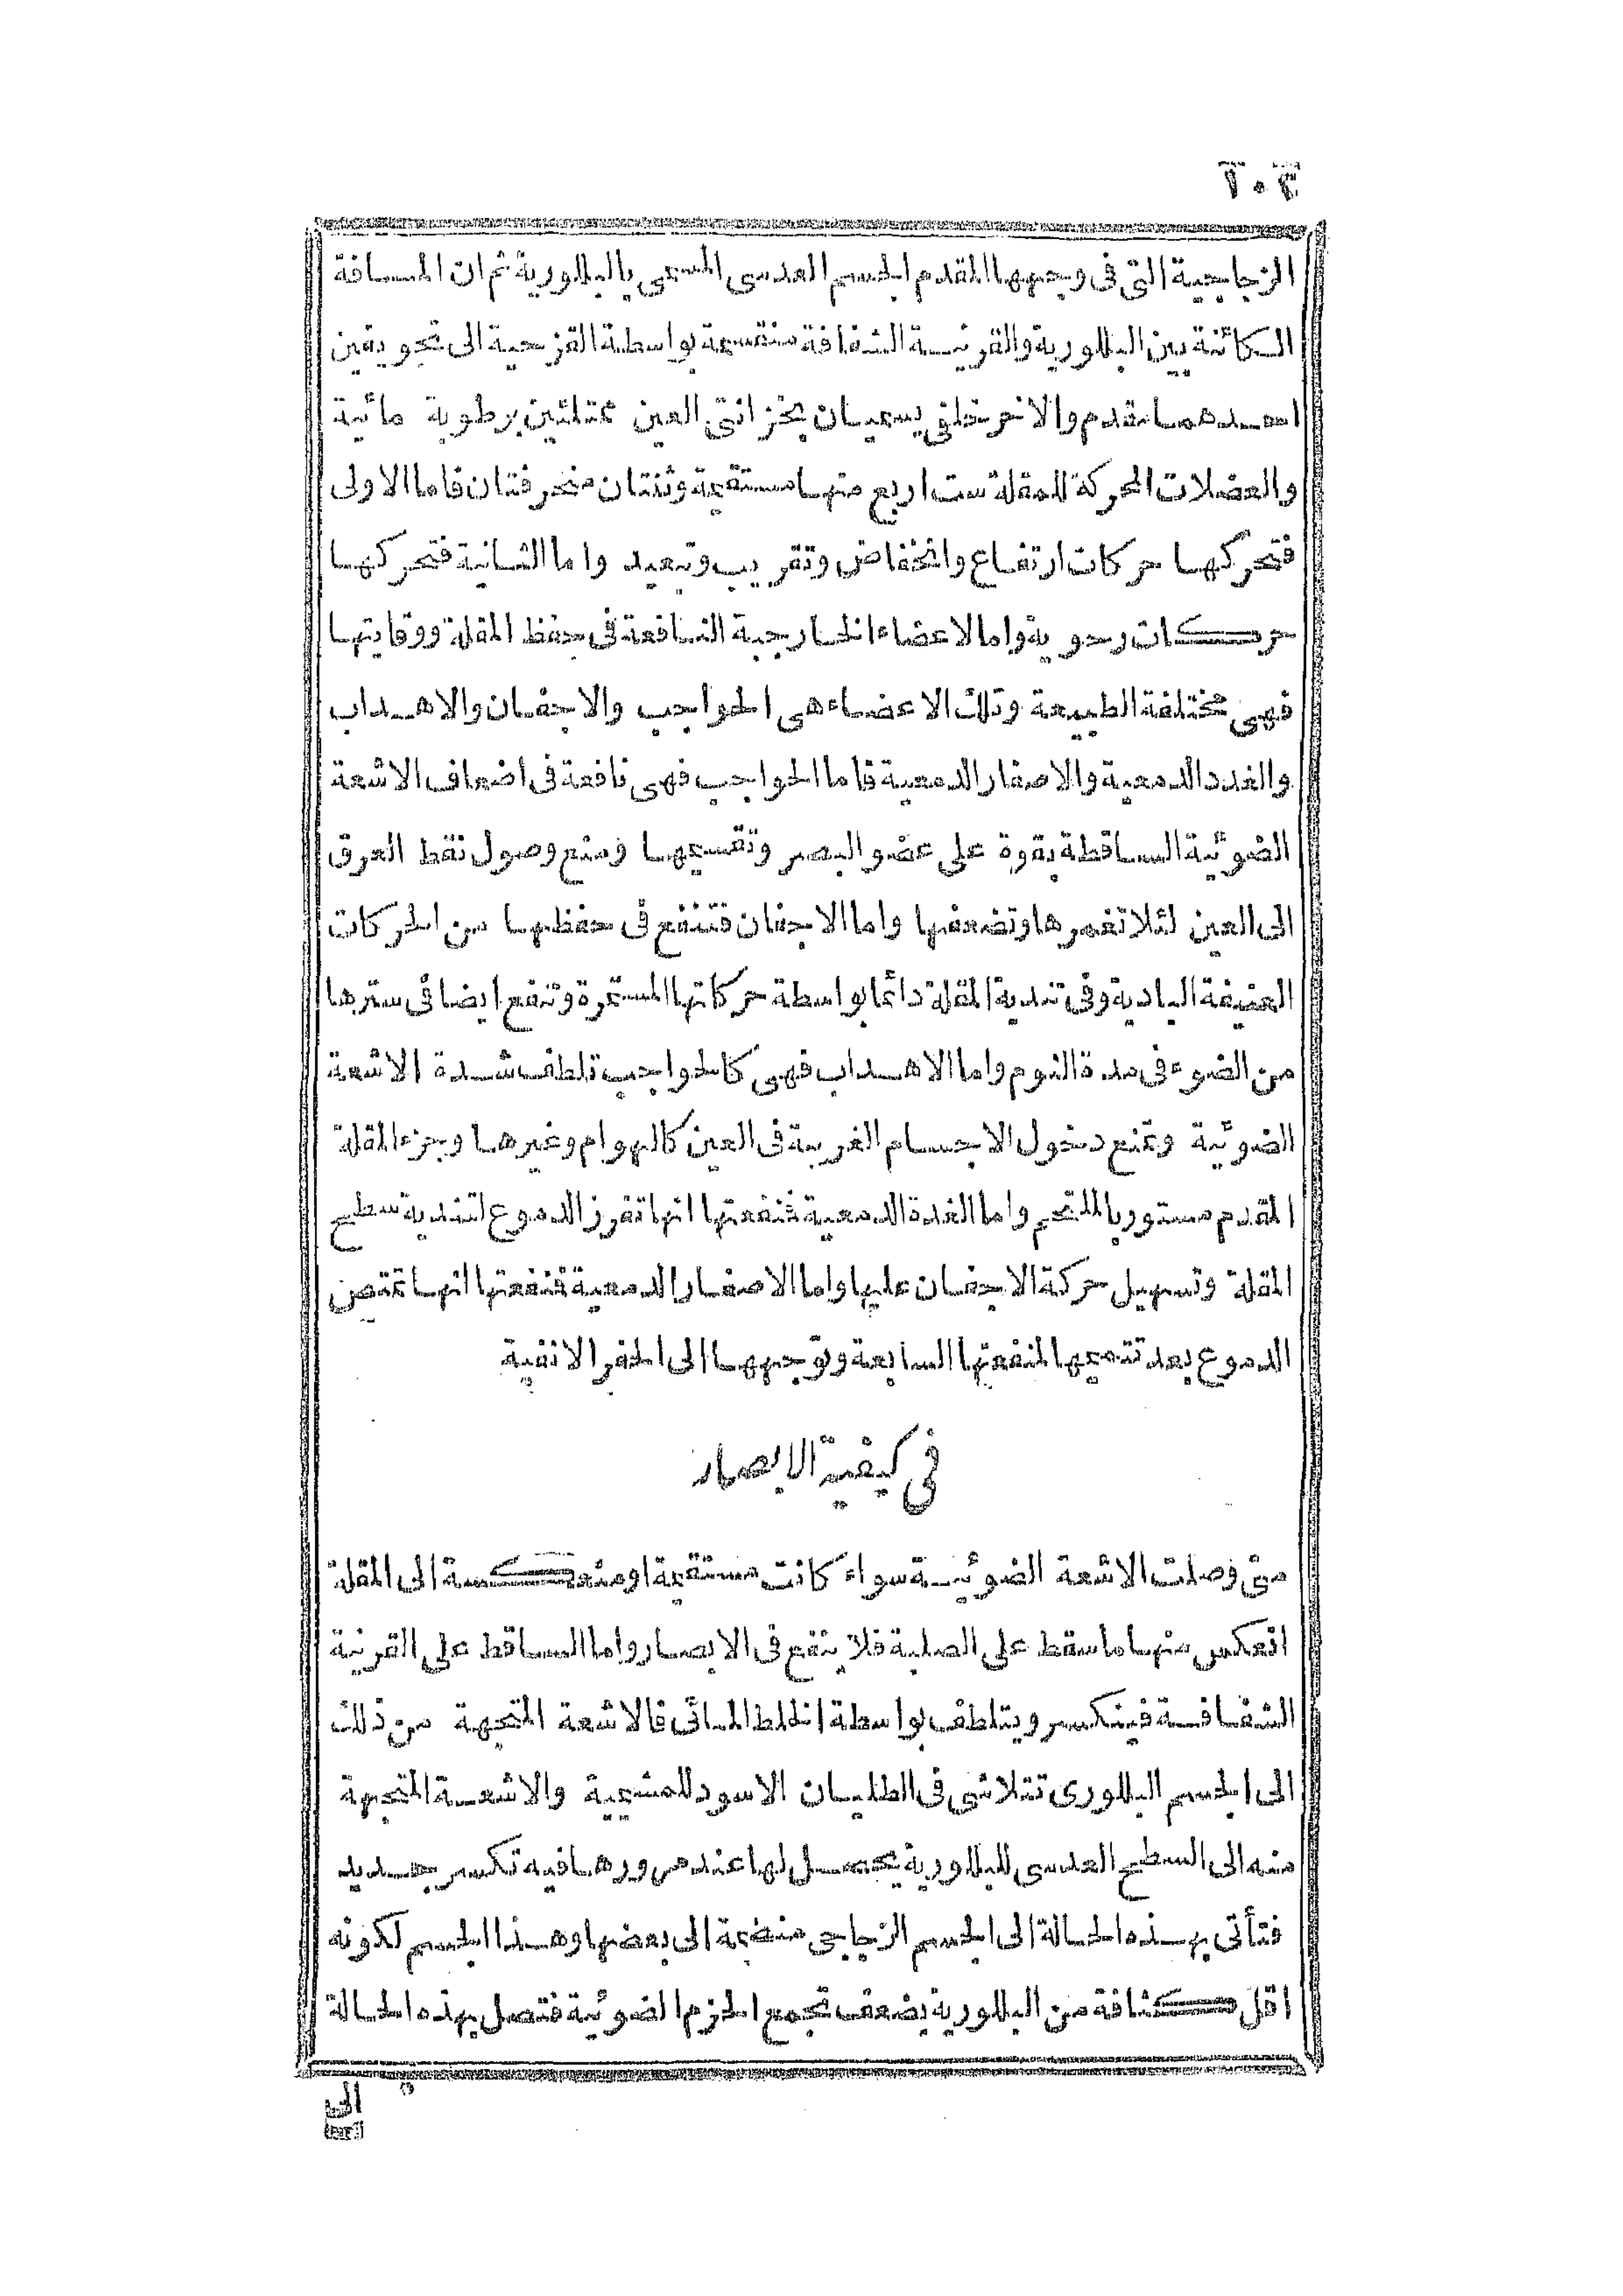 الزجاجية التى فى وجهها المقدم الجسم العدسى المسمى بالبللورية ثم ان المسافة
الكائنة بين البللورية والقرنية الشفافة منقسمة بواسطة القزحية الى تجويفين
احدهما مقدم والاخر خلفى يسميان بخزانتى العين ممتلئين برطوبة مائية
والعضلات المحركة للمقلة ست اربع منها مستقيمة وثنتان منحرفتان فاما الاولى
فتحركها حركات ارتفاع وانخفاض وتقريب وتبعيد واما الثانية فتحركها
حركات رحوية واما الاعضاء الخارجية النافعة فى حفظ المقلة ووقايتها
فهى مختلفة الطبيعة وتلك الاعضاء هى الحواجب والاجفان والاهداب
والغدد الدمعية والاصفار الدمعية فاما الحواجب فهى نافعة فى اضعاف الاشعة
الضوئية الساقطة بقوة على عضو البصر وتقسيمها ومنع وصول نقط العرق
الى العين لئلا تغمرها وتضعفها واما الاجفان فتنفع فى حفظها من الحركات
العنيفة البادية وفى تندية المقلة دائما بواسطة حركاتها المستمرة وتنفع ايضا فى سترها
من الضوء فى مدة النوم واما الاهداب فهى كالحواجب تلطف شدة الاشعة
الضوئية وتمنع دخول الاجسام الغريبة فى العين كالهوام وغيرها وجزء المقلة
المقدم مستور بالملتحم واما الغدة الدمعية فنفعتها انها تفرز الدموع لتندية سطح
المقلة وتسهيل حركة الاجفان عليها واما الاصفار الدمعية فنفعتها انها تمتص
الدموع بعد تتميمها لمنفعتها السابعة وتوجهها الى الحفر الانفية
فى كيفية الابصار
متى وصلت الاشعة الضوئية سواء كانت مستقيمة او منعكسة الى المقلة
انعكس منها ما سقط على الصلبة فلا ينفع فى الابصار واما الساقط على القرنية
الشفافة فينكسر ويتلطف بواسطة الخلط المائى فالاشعة المتجهة من ذلك
الى الجسم البللورى تتلاشى فى الطليان الاسود للمشيمية والاشعة المتجهة
منه الى السطح العدسى للبللورية يحصل لها عند مرورها فيه تكسر جديد
فتأتى بهذه الحالة الى الجسم الزجاجى منضمة الى بعضها وهذا الجسم لكونه
اقل كثافة من البللورية يضعف تجمع الحزم الضوئية فتصل بهذه الحالة
الى